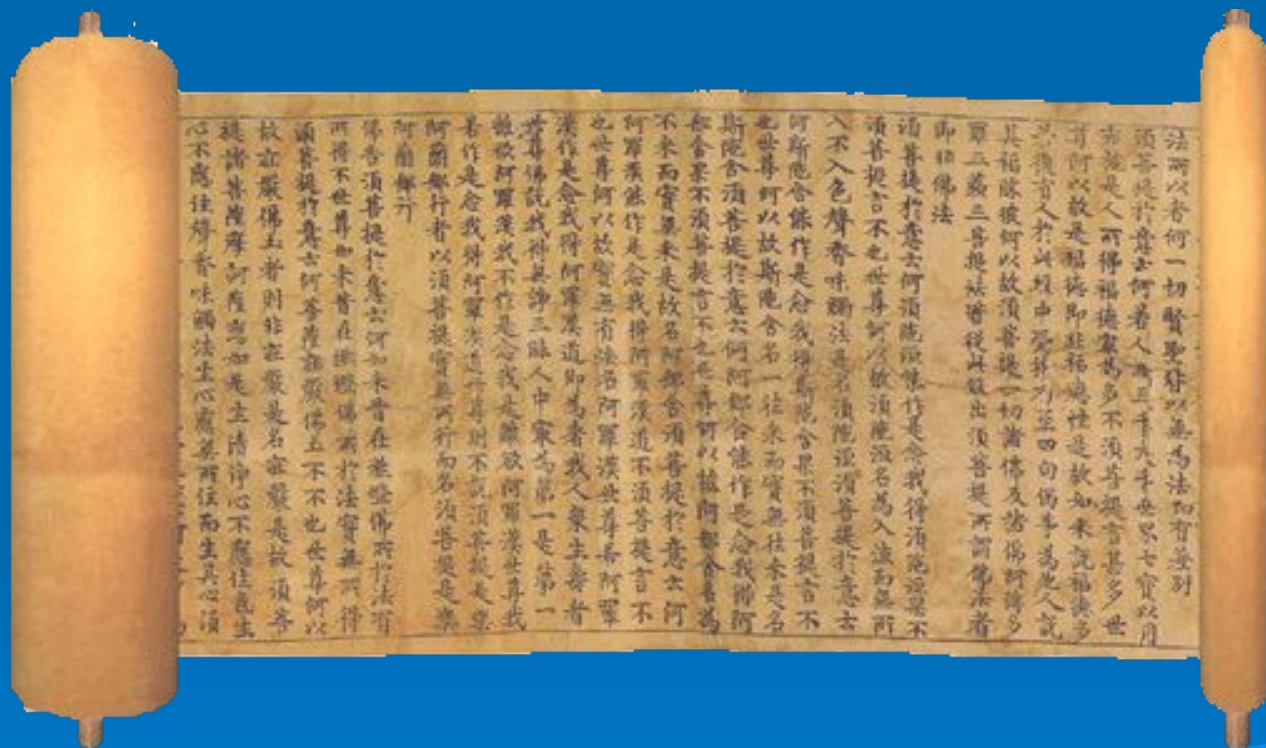 法所以者何一切賢聖皆以無為法而有差別
須菩提於意云何若人滿三千大千世界七寶以用
布施是人所得福德寧為多不須菩提言甚多世
尊何以故是福德即非福德性是故如來說福德多
若復有人於此經中受持乃至四句偈等為他人說
其福勝彼何以故須菩提一切諸佛及諸佛阿耨多
羅三藐三菩提法皆從此經出須菩提所謂佛法者
即非佛法
須菩提於意云何須陀洹能作是念我得須陀洹果不
須菩提言不也世尊何以故須陀洹名為入流而無所
入不入色聲香味觸法是名須陀洹須菩提於意云
何斯陀含能作是念我得斯陀含果不須菩提言不
也世尊何以故斯陀含名一往來而實無往來是名
斯陀含須菩提於意云何阿那含能作是念我得阿
那含果不須菩提言不也世尊何以故阿那含名為
不來而實無來是故名阿那含須菩提於意云何
阿羅漢能作是念我得阿羅漢道不須菩提言不
也世尊何以故實無有法名阿羅漢世尊若阿羅
漢作是念我得阿羅漢道即為著我人眾生壽者
世尊佛說我得無諍三昧人中最為第一是第一
離欲阿羅漢我不作是念我是離欲阿羅漢世尊我
若作是念我得阿羅漢道世尊則不說須菩提是樂
阿蘭那行者以須菩提實無所行而名須菩提是樂
阿蘭那行
佛告須菩提於意云何如來昔在然燈佛所於法有
所得不世尊如來昔在然燈佛所於法實無所得
須菩提於意云何菩薩莊嚴佛土不不也世尊何以
故莊嚴佛土者則非莊嚴是名莊嚴是故須菩
提諸菩薩摩訶薩應如是生清淨心不應住色生
心不應住聲香味觸法生心應無所住而生其心須